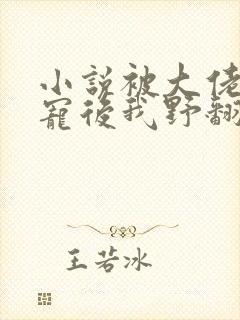 小說被大佬
寵後我野翻
王若冰